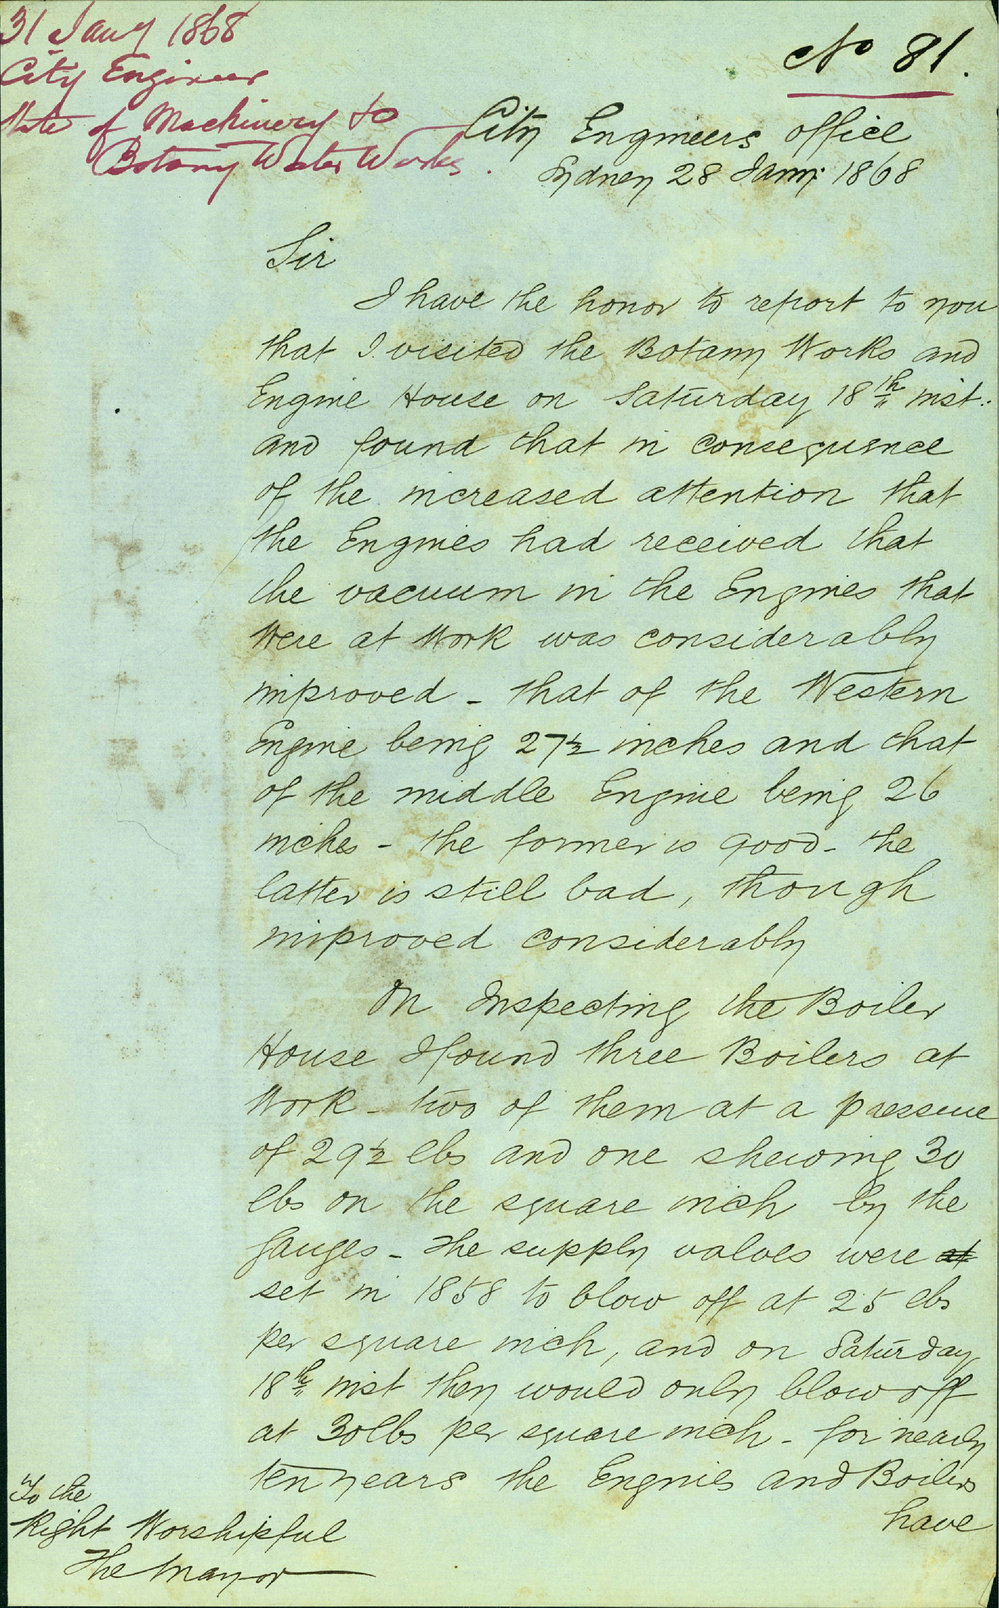 31 Jany 1868
City Engineer
State of Machinery to
Botany Water Works.
No 81.
City Engineers office
Sydney 28 Jany. 1868
Sir
I have the honor to report to you
that I visited the Botany Works and
Engine House on Saturday 18th inst.
and found that in consequence
of the increased attention that
the Engines had received that
the vacuum in the Engines that
were at work was considerably
improved - that of the Western
Engine being 27½ inches and that
of the middle Engine being 26
inches - the former is good - the
latter is still bad, though
improved considerably
On Inspecting the Boiler
House I found three Boilers at
Work - two of them at a pressure
of 29½ lbs and one shewing 30
lbs on the square inch by the
gauges - The supply valves were at
set in 1858 to blow off at 25 lbs
per square inch, and on Saturday
18th inst they would only blow off
at 30 lbs per square inch - for nearly
ten years the Engines and Boilers
have
To the
Right Worshipful
The Mayor